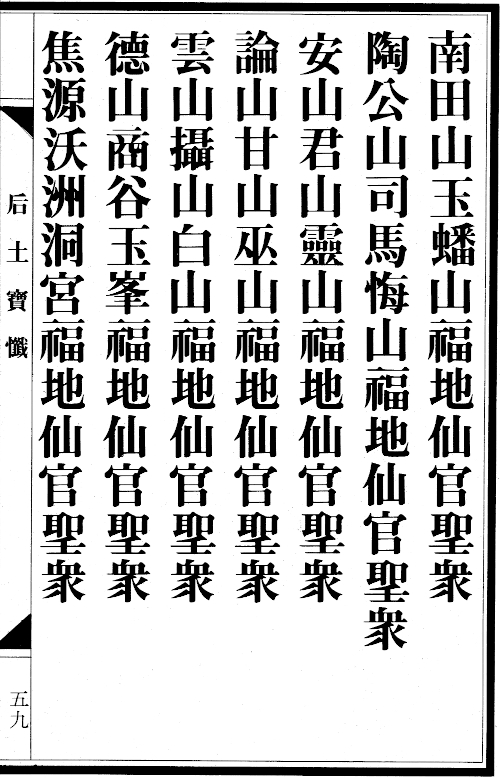 南田山玉蟠山福地仙官聖衆
陶公山司馬悔山福地仙官聖衆
安山君山靈山福地仙官聖衆
論山甘山巫山福地仙官聖衆
雲山攝山白山福地仙官聖衆
德山商谷玉峯福地仙官聖衆
焦源沃洲洞宮福地仙官聖衆
后土寶懺
五九